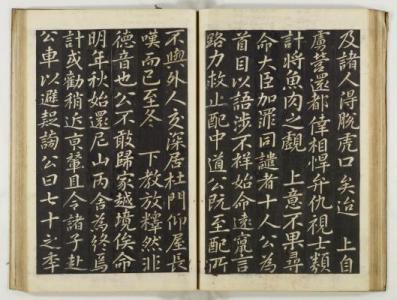 及諸人得脫虎口矣迨 上自
虜營還都倖相悍弁仇視士類
計將魚肉之覬 上意不果尋
命大臣加罪同譴者十人公為
首目以語涉不祥始命遠竄言
路力救止配中道公阮至配所
不與外人交深居杜門仰屋長
嘆而已至冬 下教放釋然非
德音也公不敢歸家越境俟命
明年秋始還尼山丙舍為終焉
計或勸稍近京輦且令諸子赴
公車以避疑謗公曰七十之年